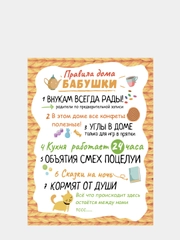 Правила дома
БАБУШКИ
1 ВНУКАМ ВСЕГДА РАДЫ!
родители по предварительной записи
2 В этом доме все конфеты
полезные!
3 УГЛЫ В ДОМЕ
только для игр в прятки
4 Кухня работает 24 часа
5 ОБЪЯТИЯ СМЕХ ПОЦЕЛУИ
6 Сказки на ночь
7 КОРМЯТ ОТ ДУШИ
Всё что происходит здесь
остаётся между нами
тссс......